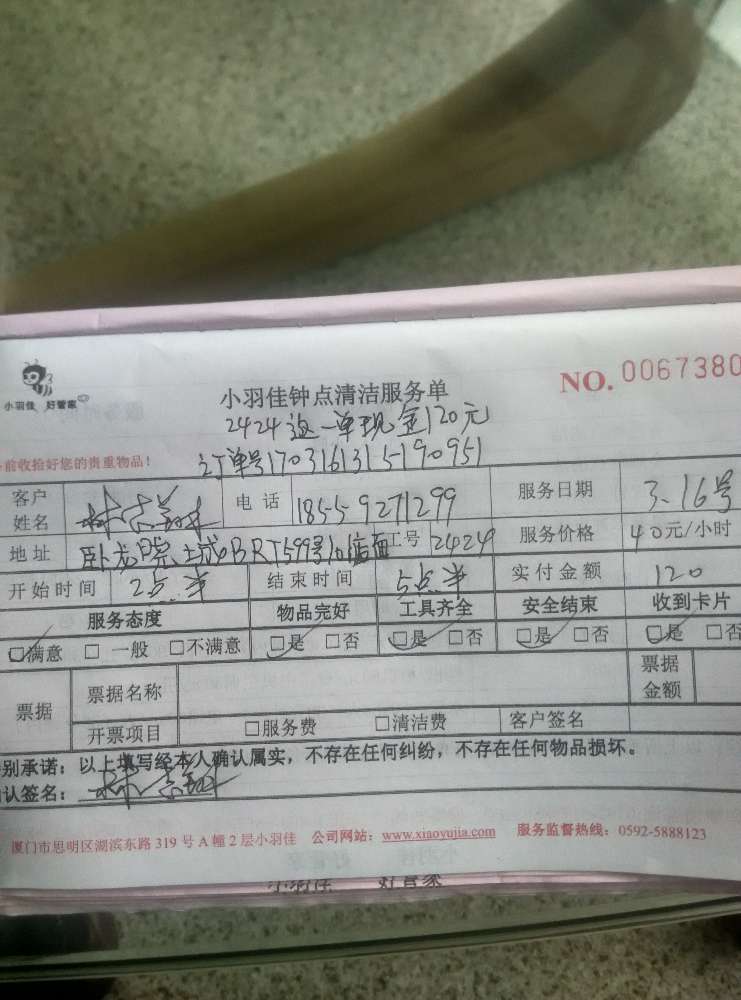 小羽佳 好管家
小羽佳钟点清洁服务单
NO. 0067380
2424这一单现金120元
前收拾好您的贵重物品!
订单号1703161315190951
客户姓名 电话 18559271299 服务日期 3.16号
地址 BRT599号101店面 工号 2424 服务价格 40元/小时
开始时间 2点半 结束时间 5点半 实付金额 120
服务态度 物品完好 工具齐全 安全结束 收到卡片
□满意 □一般 □不满意 □是 □否 □是 □否 □是 □否 □是 □否
票据 票据名称 票据金额
开票项目 □服务费 □清洁费 客户签名
别承诺:以上填写经本人确认属实,不存在任何纠纷,不存在任何物品损坏。
认签名:
厦门市思明区湖滨东路319号A幢2层小羽佳 公司网站:www.xiaoyujia.com 服务监督热线:0592-5888123
小羽佳 好管家